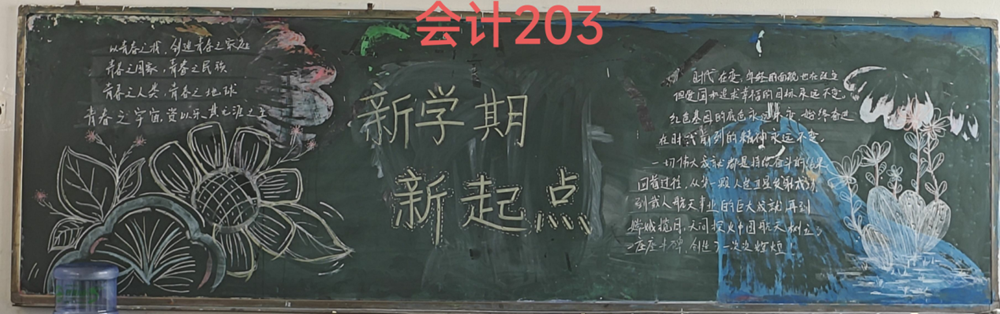 会计203
以青春之我，创造青春之家庭
青春之国家，青春之民族
青春之人类，青春之地球
青春之宇宙，资以乐其无涯之生
新学期
新起点
时代在变，年轻的面貌也在改变
但爱国和追求幸福的目标永远不变
红色基因的底色永远不变，始终奋进
在时代前列的精神永远不变
一切伟大成就都是接续奋斗的
回首过往，从第一颗人造卫星发射成功
到载人航天事业的巨大成就，再到
嫦娥揽月，天问探火中国航天树立
一座座丰碑，创造了一次次辉煌！